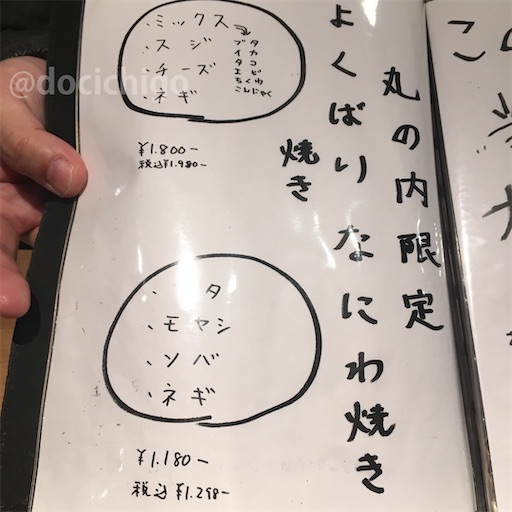 丸の内限定
よくばり
焼き
・ミックス
ブタ
イカ
タコ
エビ
ちくわ
こんにゃく
・スジ
・チーズ
・ネギ
¥1.800-
税込¥1.980-
なにわ焼き
タ
・モヤシ
・ソバ
・ネギ
¥1.180-
税込¥1.298-
@docichido